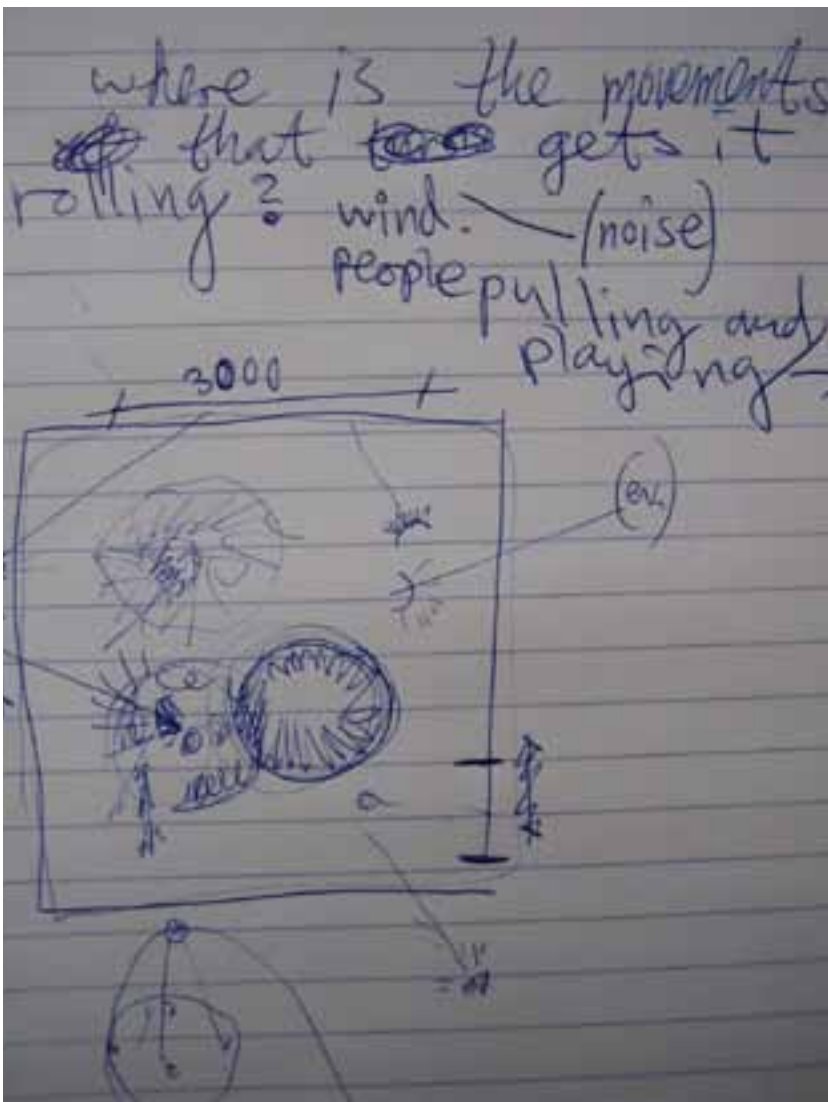 where is the movements
that gets it
rolling? wind. (noise)
people pulling and
playing
3000